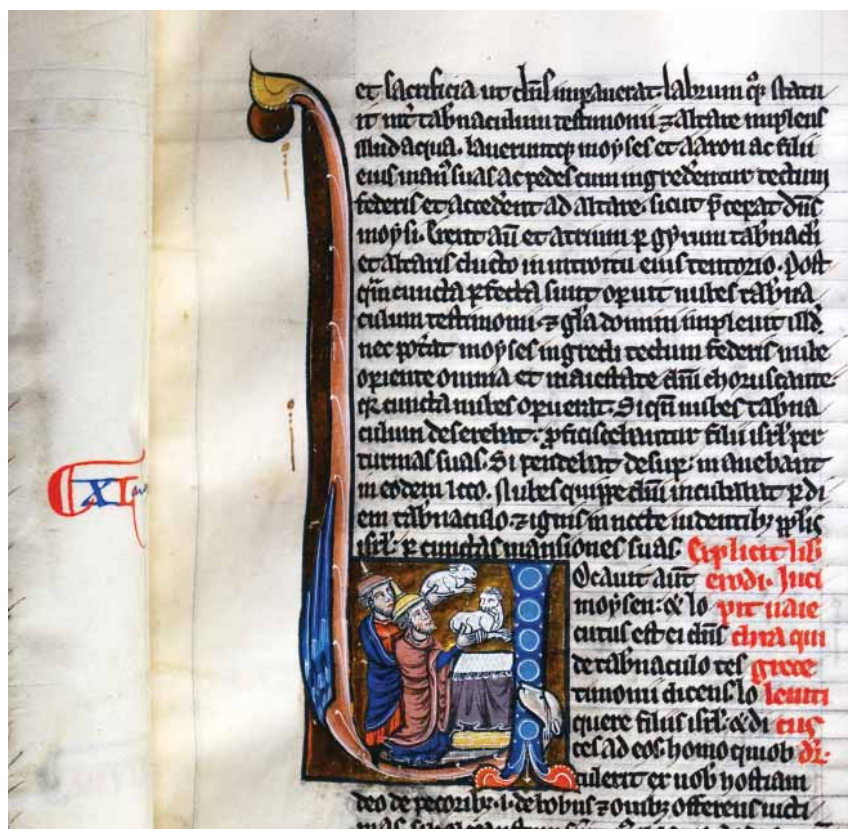 et sacrificia ut dns imperauerat. labrum qz statu
it int tabnaculum testimonii z altare implens
illud aqua. laueruntqz moyses et aaron ac filii
eius manus suas ac pedes cum ingrederentur tectum
federis et accederent ad altare. sicut pceperat dns
moysi. Erexit aut et atrium p gyrum tabnacli
et altaris ducto in introitu eius tentorio. Post
qm cuncta pfecta sunt opuit nubes tabna
culum testimonii. z gla domini impleuit illd.
nec potat moyses ingredi tectum federis nube
opiente omnia et maiestate dni choruscante.
qz cuncta nubes opuerat. Siqn nubes tabna
culum deserebat. pficiscebantur filii isrl per
turmas suas. Si pendebat desup. manebant
in eodem loco. Nubes quippe dni incubabat p di
em tabnaculo. z ignis in nocte uidentibz pplis
isrl. p cunctas mansiones suas. Explicit lib
Ocauit aut exodi. Inci
moysen: & lo pit uaie
cutus est ei dns chra qui
de tabnaculo tes grece
timonii dicens lo leuiti
quere filiis isrl. & di cus
ces ad eos homo qui ob dr.
tulerit ex uob hostiam
deo de pecoribz. i. de bobus z ouibz offerens uicti
XL